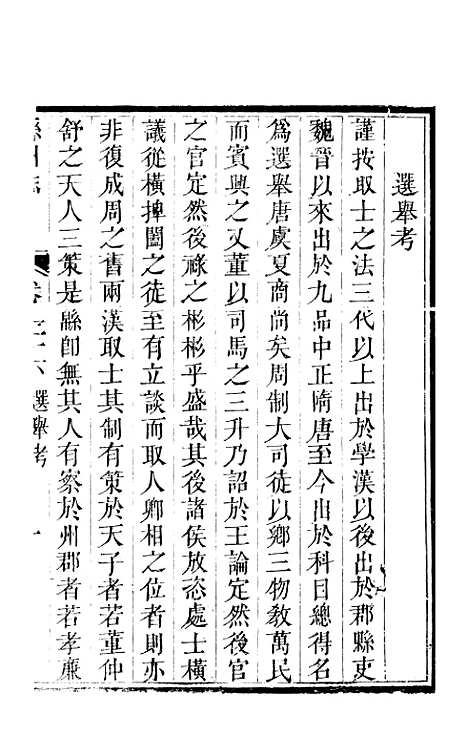 選舉考
謹按取士之法三代以上出於學漢以後出於郡縣吏
魏晉以來出於九品中正隋唐至今出於科目總得名
爲選舉唐虞夏商尚矣周制大司徒以鄉三物敎萬民
而賓興之又董以司馬之三升乃詔於王論定然後官
之官定然後祿之彬彬乎盛哉其後諸侯放恣處士橫
議從橫捭闔之徒至有立談而取人卿相之位者則亦
非復成周之舊兩漢取士其制有策於天子者若董仲
舒之天人三策是縣卽無其人有察於州郡者若孝廉
卷之二六 選舉考 一